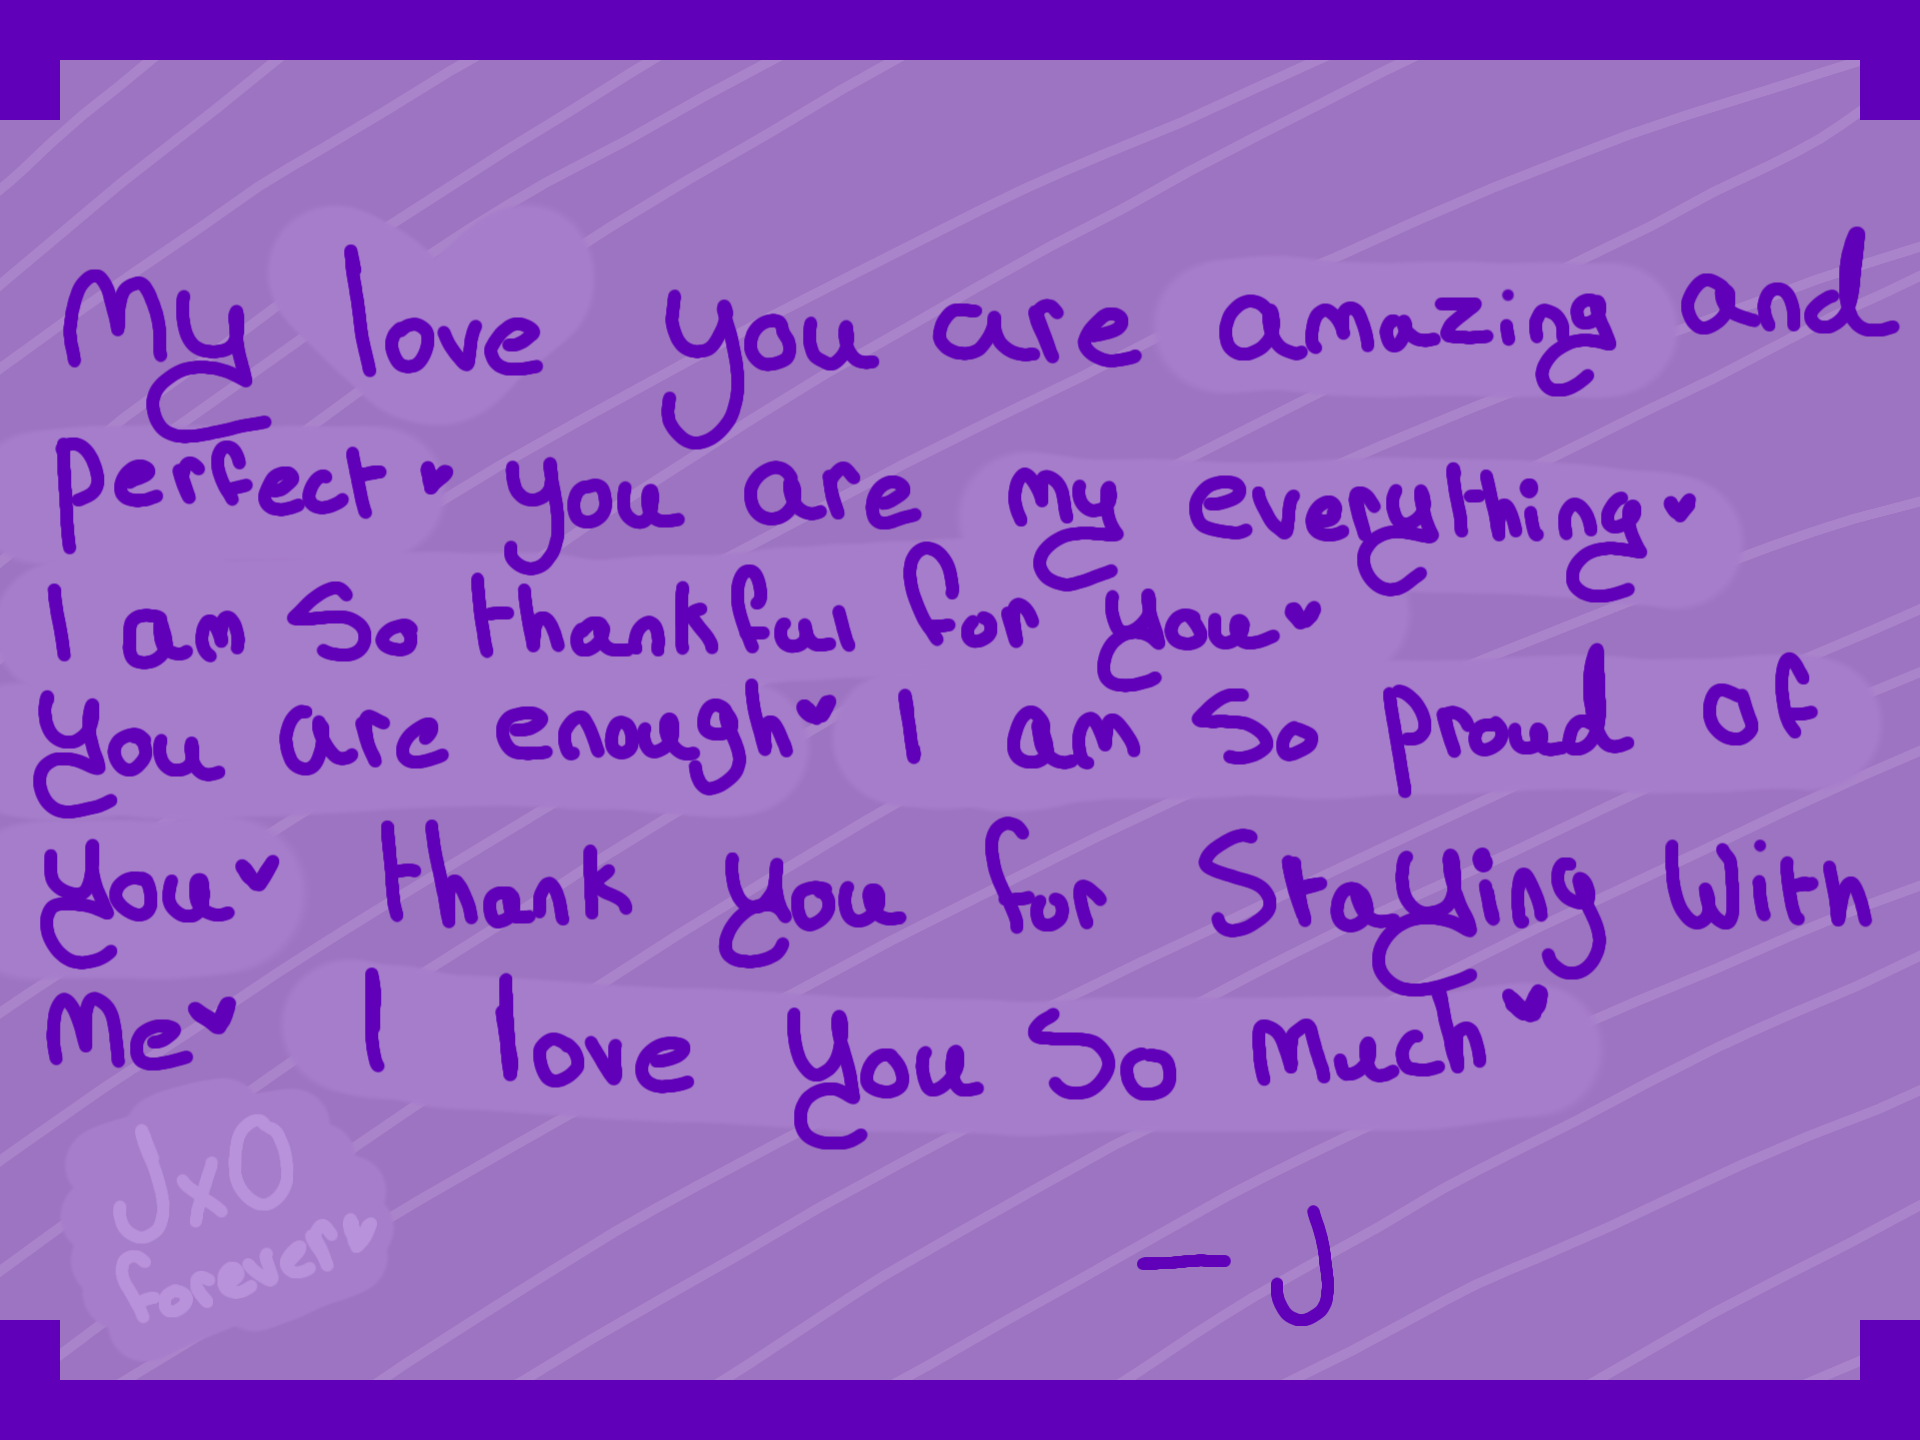 My love you are amazing and
perfect ♥ you are my everything ♥
I am So thankful for you ♥
you are enough ♥ I am So proud of
you ♥ thank you for Staying With
Me ♥ I love you So Much ♥
JxO
forever ♥
— J